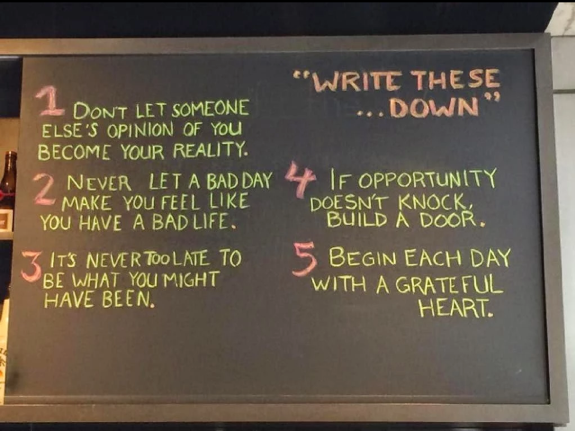 "WRITE THESE
...DOWN"
1 DONT LET SOMEONE
ELSE'S OPINION OF YOU
BECOME YOUR REALITY.
2 NEVER LET A BAD DAY
MAKE YOU FEEL LIKE
YOU HAVE A BAD LIFE.
3 IT'S NEVER TOO LATE TO
BE WHAT YOU MIGHT
HAVE BEEN.
4 IF OPPORTUNITY
DOESN'T KNOCK,
BUILD A DOOR.
5 BEGIN EACH DAY
WITH A GRATEFUL
HEART.